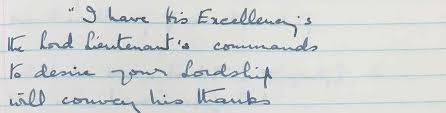 "I have His Excellency's
the Lord Lieutenant's commands
to desire your Lordship
will convey his thanks